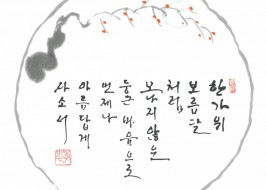 한가위
보름달
처럼
모나지 않은
둥근 마음으로
언제나
아름답게
사소서